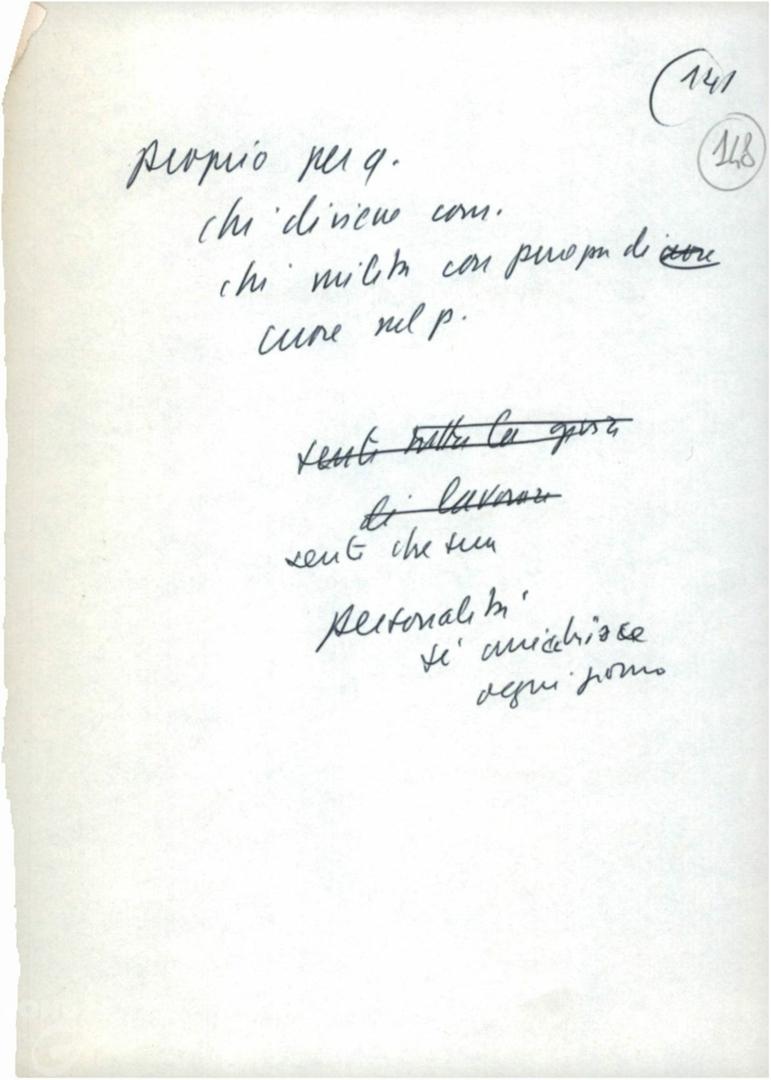 141
148
proprio per q.
chi diviene com.
chi milita con di
cuore nel p.
sente tutta la gioia
di lavorare
sente che sua
personalità
si arricchisce
ogni giorno